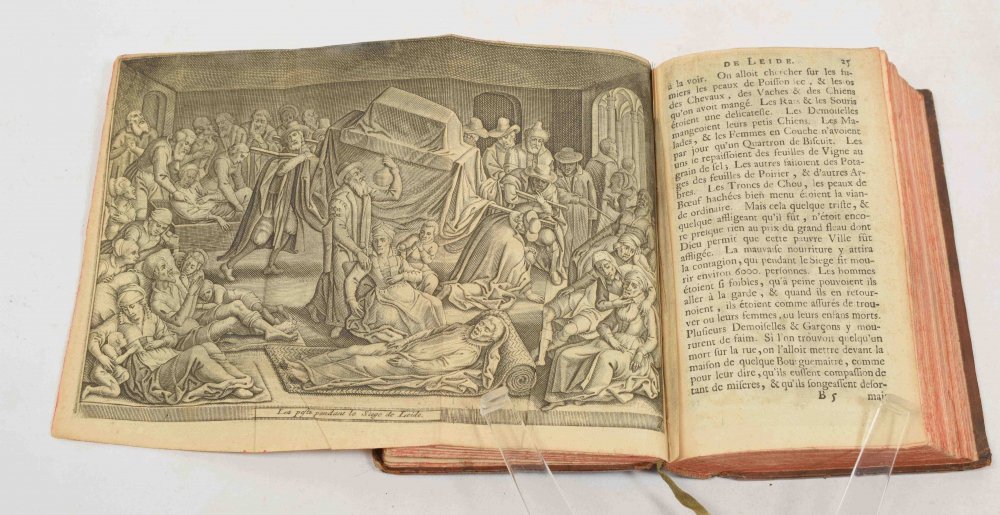 La peste pendant le Siege de Leide.
DE LEIDE. 25
à la voir. On alloit chercher sur les fu-
miers les peaux de Poisson sec, & les os
des Chevaux, des Vaches & des Chiens
qu'on avoit mangé. Les Rats & les Souris
étoient une délicatesse. Les Demoiselles
mangeoient leurs petis Chiens. Les Ma-
lades, & les Femmes en Couche n'avoient
par jour qu'un Quartron de Biscuit. Les
uns se repaissoient des feuilles de Vigne au
grain de sel; Les autres faisoient des Pota-
ges des feuilles de Poirier, & d'autres Ar-
bres. Les Troncs de Chou, les peaux de
Bœuf hachées bien menu étoient la vian-
de ordinaire. Mais cela quelque triste, &
quelque affligeant qu'il fût, n'étoit enco-
re presque rien au prix du grand fleau dont
Dieu permit que cette pauvre Ville fût
affligée. La mauvaise nourriture y attira
la contagion, qui pendant le Siege fit mou-
rir environ 6000. personnes. Les hommes
étoient si foibles, qu'à peine pouvoient ils
aller à la garde, & quand ils en retour-
noient, ils étoient comme assurés de trou-
ver ou leurs femmes, ou leurs enfans morts.
Plusieurs Demoiselles & Garçons y mou-
rurent de faim. Si l'on trouvoit quelqu'un
mort sur la rue, on l'alloit mettre devant la
maison de quelque Bourguemaitre, comme
pour leur dire, qu'ils eussent compassion de
tant de miseres, & qu'ils songeassent desor-
B 5 mais